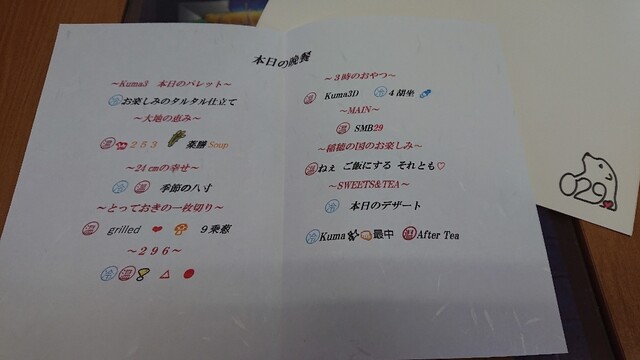 本日の晩餐
～Kuma3　本日のパレット～
冷 お楽しみのタルタル仕立て
～大地の恵み～
温 ２５３ 薬膳Soup
～24㎝の幸せ～
冷 温 季節の八寸
～とっておきの一枚切り～
温 grilled ❤ ９乗葱
～２９６～
冷 温 △ ●
～３時のおやつ～
温 Kuma3D 冷 ４胡坐
～MAIN～
温 SMB29
～稲穂の国のお楽しみ～
温 ねぇ ご飯にする それとも♡
～SWEETS&TEA～
冷 本日のデザート
冷 Kuma 最中 温 After Tea
029